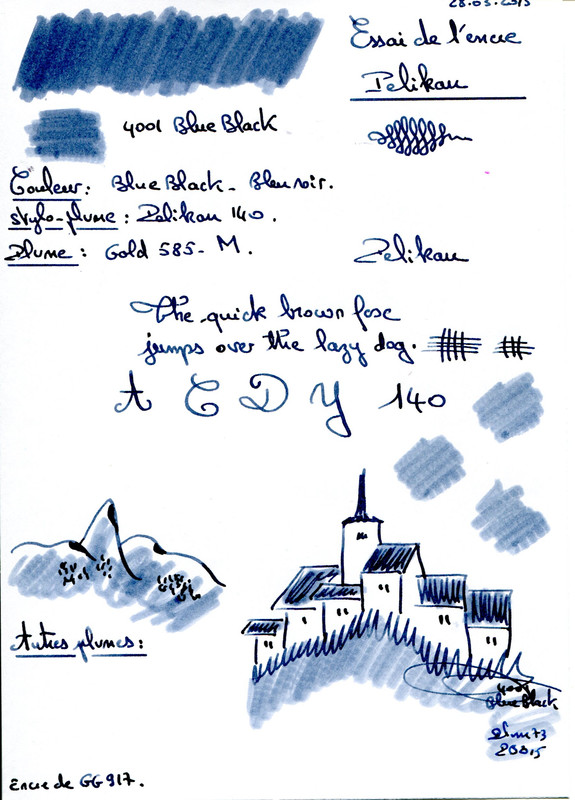 Essai de l'encre
Pelikan
4001 Blue Black
Couleur : Blue Black - Bleu noir.
Stylo-plume : Pelikan 140.
Plume : Gold 585 - M.
Pelikan
The quick brown fox
jumps over the lazy dog.
A C D Y 140
Autres plumes :
4001
Blue Black
Encre de GG917.